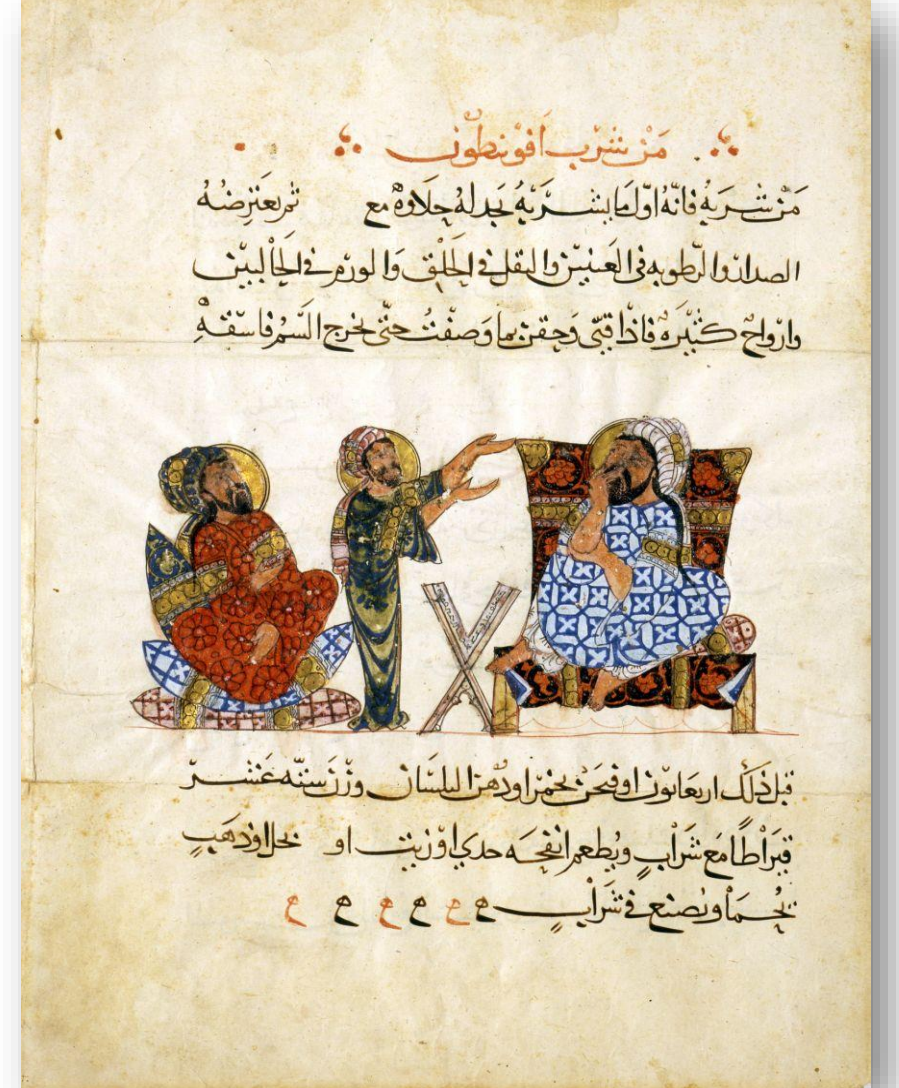 مَنْ شَرِبَ افونيطون
مَنْ شَربَهُ فانّهُ اوّل مَا يشــربَهُ يجد لهُ حلاوةً مع ثم يعترضهُ
الصداع والرطوبه فى العينين والثقل فى الحَلْق وَالورم فى الحَالبين
وارواح كثيره فاذا قيّى وَحقن بما وَصفتُ حتّى يخرج السّم فاسقهِ
قبل ذلك او فيجن بخمر اودهن البلسَان وزن ستّه عَشــر
قيرَاطًا مَع شَرَابٍ ويُطعم انفحَه جدي او زيت او بخل اوذهبٍ
يُحْــمَا ويُصنع فى شَرَابٍ